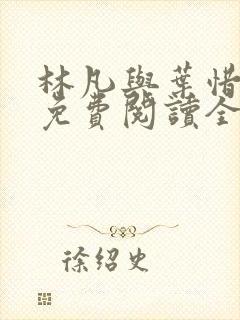 林凡與葉惜
免費閱讀全
徐紹史